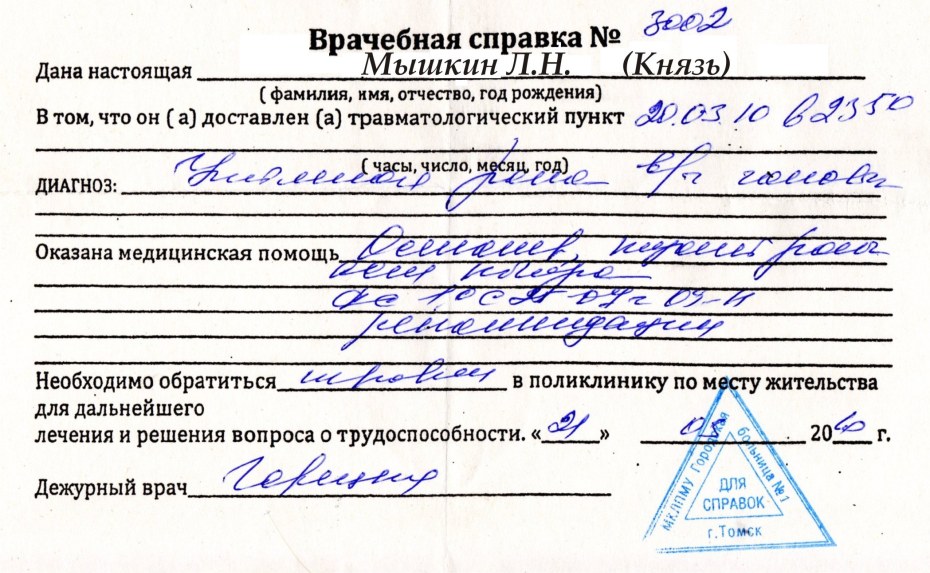 Врачебная справка № 3002
Дана настоящая Мышкин Л.Н. (Князь)
( фамилия, имя, отчество, год рождения)
В том, что он ( а) доставлен (а) травматологический пункт 20.03.10 в 23 50
( часы, число, месяц, год)
ДИАГНОЗ: рана головы
Оказана медицинская помощь Осмотр,
рекомендации
Необходимо обратиться в поликлинику по месту жительства
для дальнейшего
лечения и решения вопроса о трудоспособности. «21» 20 10 г.
Дежурный врач
МКЛПМУ Городская больница №1
ДЛЯ
СПРАВОК
г.Томск